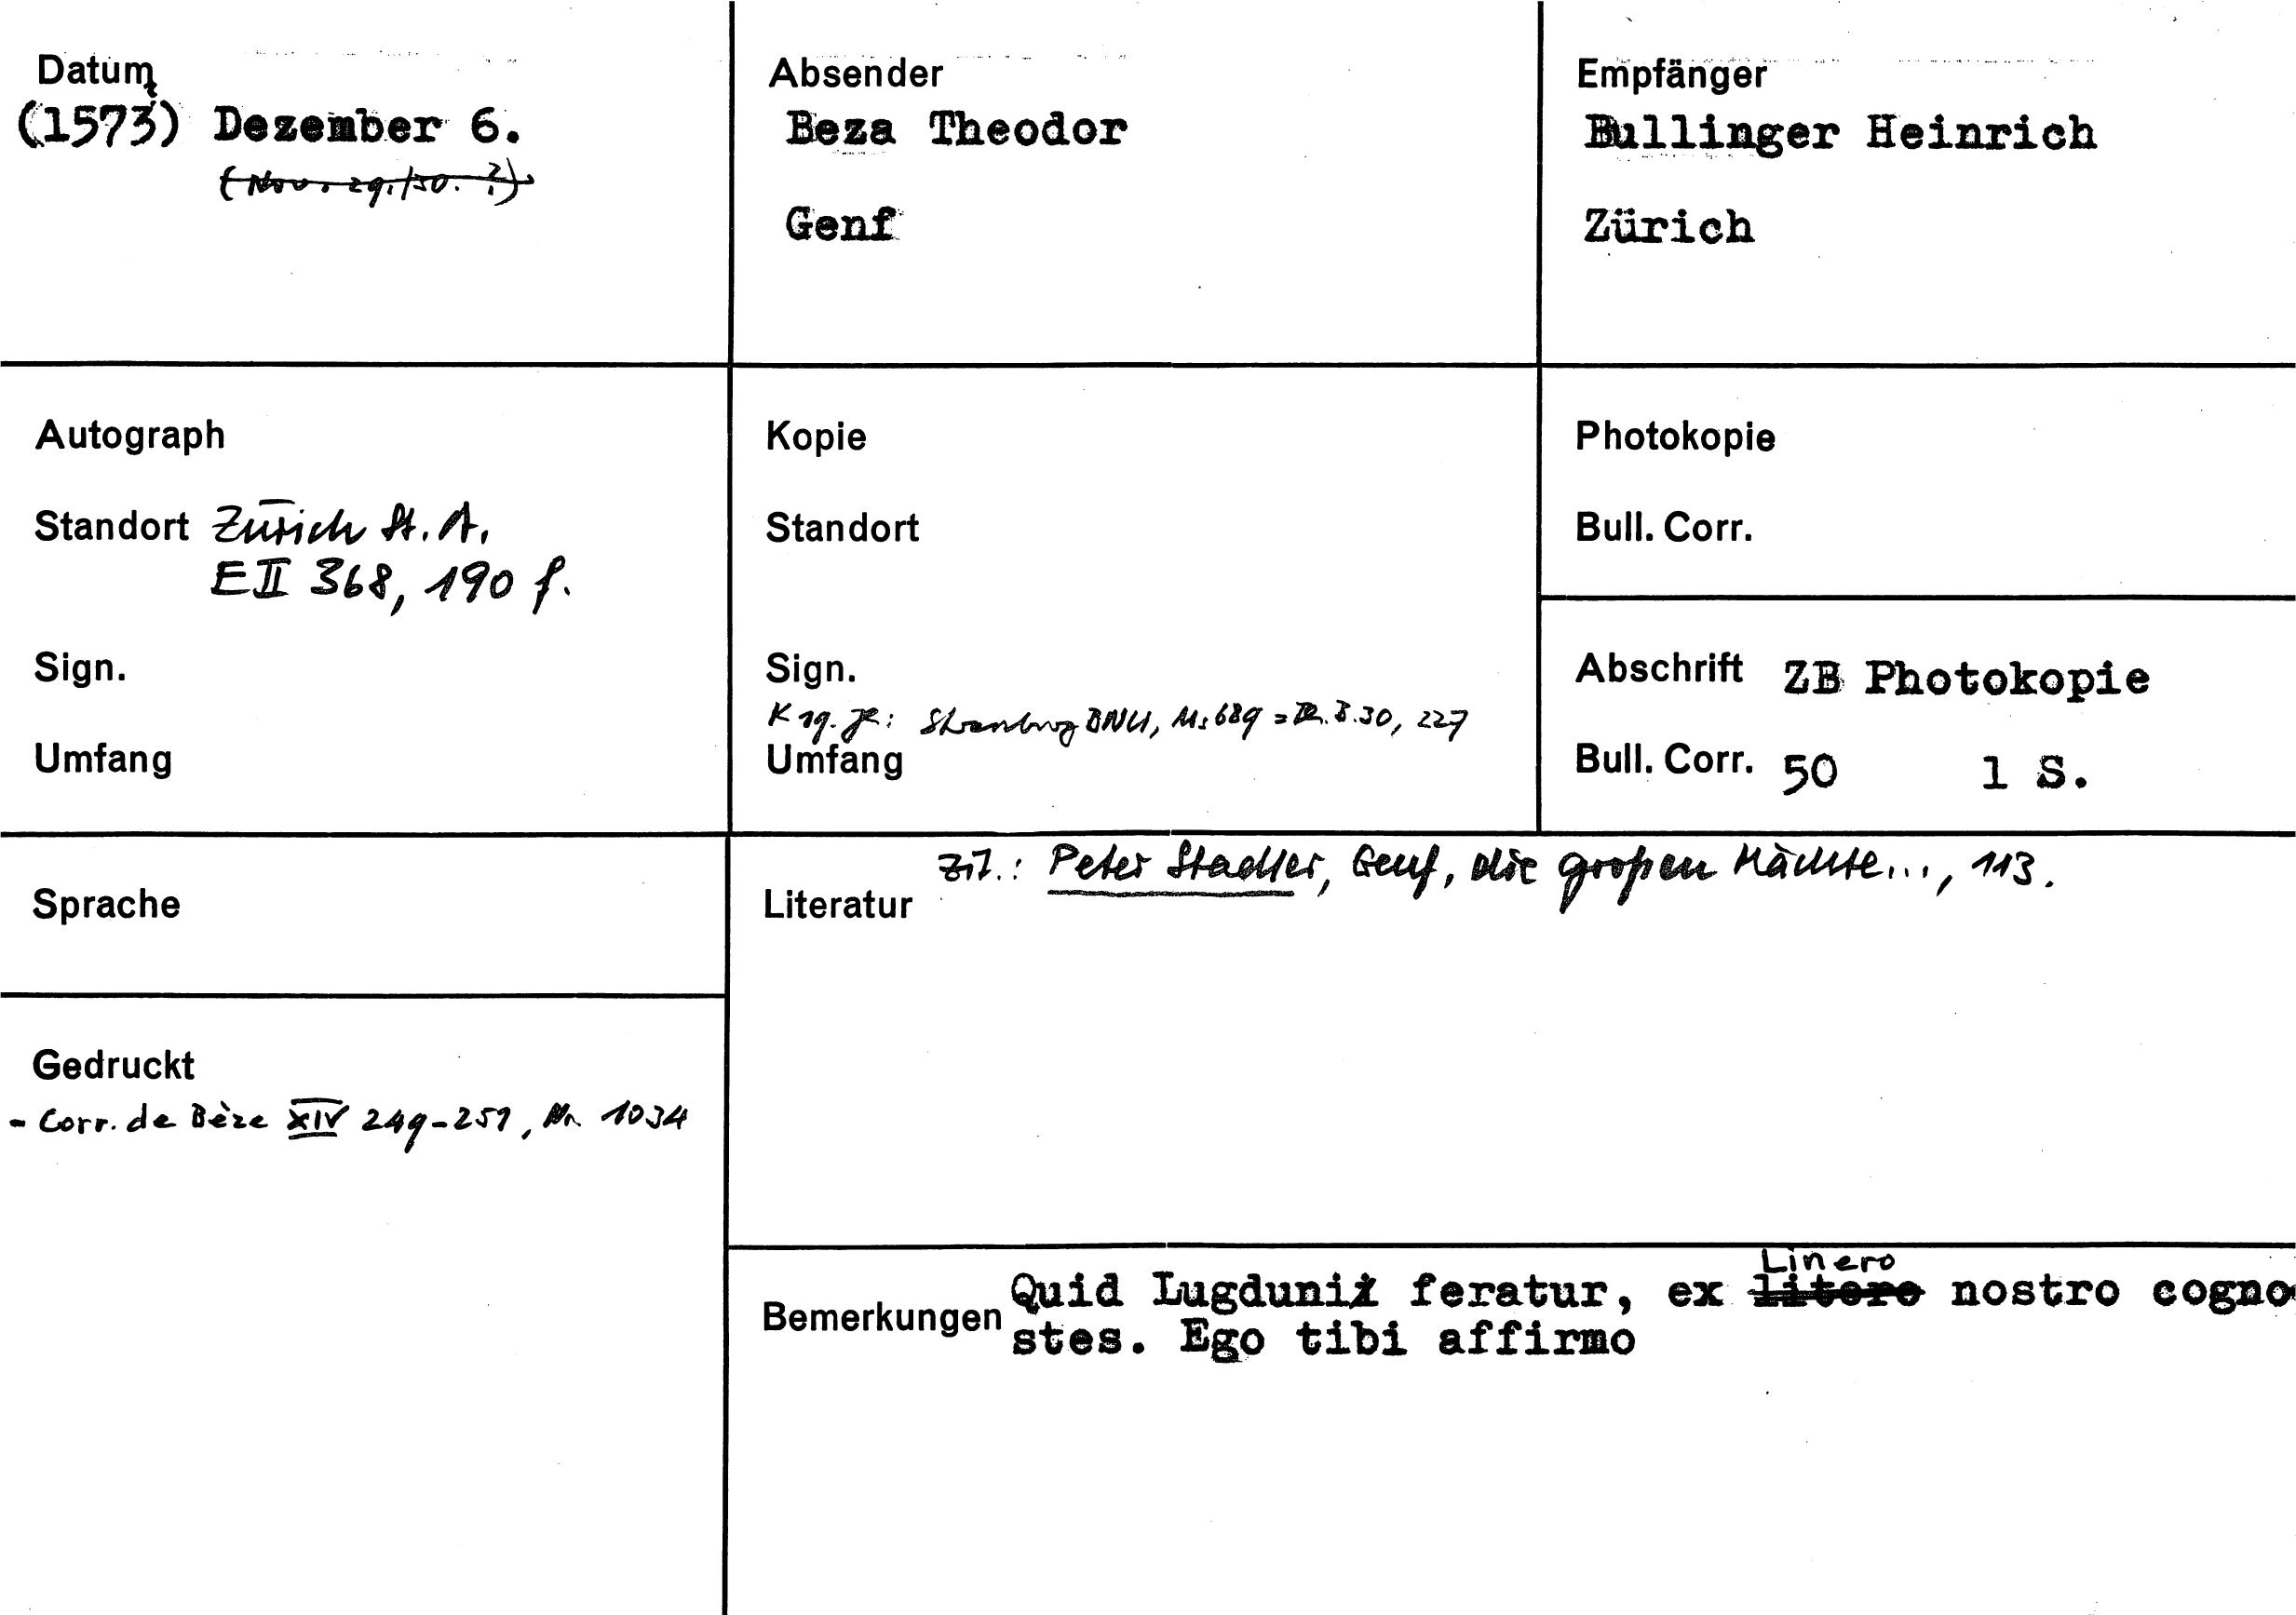 Datum
(1573) Dezember 6.
(Nov. 29./30. ?)
Absender
Beza Theodor
Genf
Empfänger
Bullinger Heinrich
Zürich
Autograph
Standort Zürich St. A.
E II 368, 190 f.
Sign.
Umfang
Kopie
Standort
Sign.
K 19. Jh: Strassburg BNU, Ms 689 = 30, 227
Umfang
Photokopie
Bull. Corr.
Abschrift ZB Photokopie
Bull. Corr. 50 1 S.
Sprache
Gedruckt
- Corr. de Bèze XIV 249-251, Nr. 1034
Zit.: Peter Stadler, Genf, die großen Mächte..., 113.
Literatur
Linero
Bemerkungen Quid Lugduni feratur, ex litere nostro cogno
stes. Ego tibi affirmo